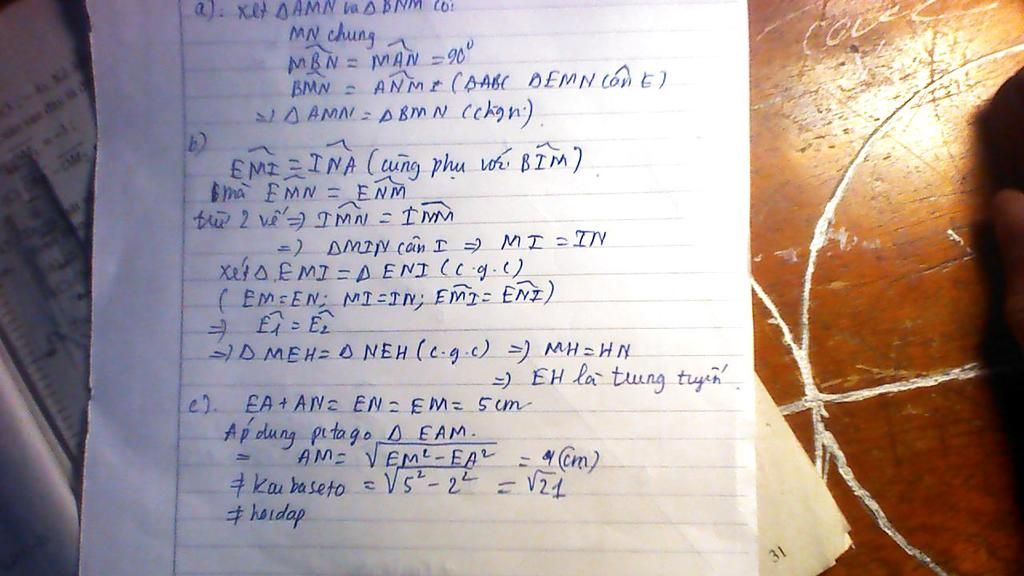 a). Xét ΔAMN và ΔBNM có:
MN chung
MBN = MAN = 90⁰
BMN = ANM (ΔABC ΔEMN cân E)
=> ΔAMN = ΔBMN (chgn)
b)
EMI = INA (cùng phụ với BIM)
mà EMN = ENM
trừ 2 vế => IMN = INM
=> ΔMIN cân I => MI = IN
Xét Δ EMI = Δ ENI (c.g.c)
(EM=EN; MI=IN; EMI = ENI)
=> E1 = E2
=> Δ MEH = Δ NEH (c.g.c) => MH = HN
=> EH là trung tuyến.
c). EA + AN = EN = EM = 5cm
Áp dụng pitago Δ EAM.
= AM = √EM² - EA² = 9 (cm)
≠ Kaubaseto = √5² - 2² = √21
≠ hoidap
31